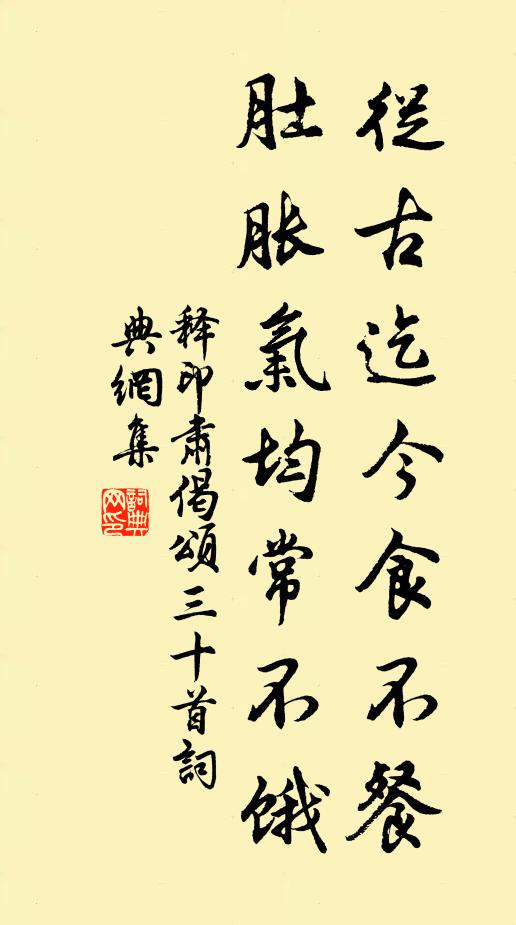 從古迄今食不餐
肚脹氣均常不餓
释印肃偈頌三十首詞
典網集
詞典网印